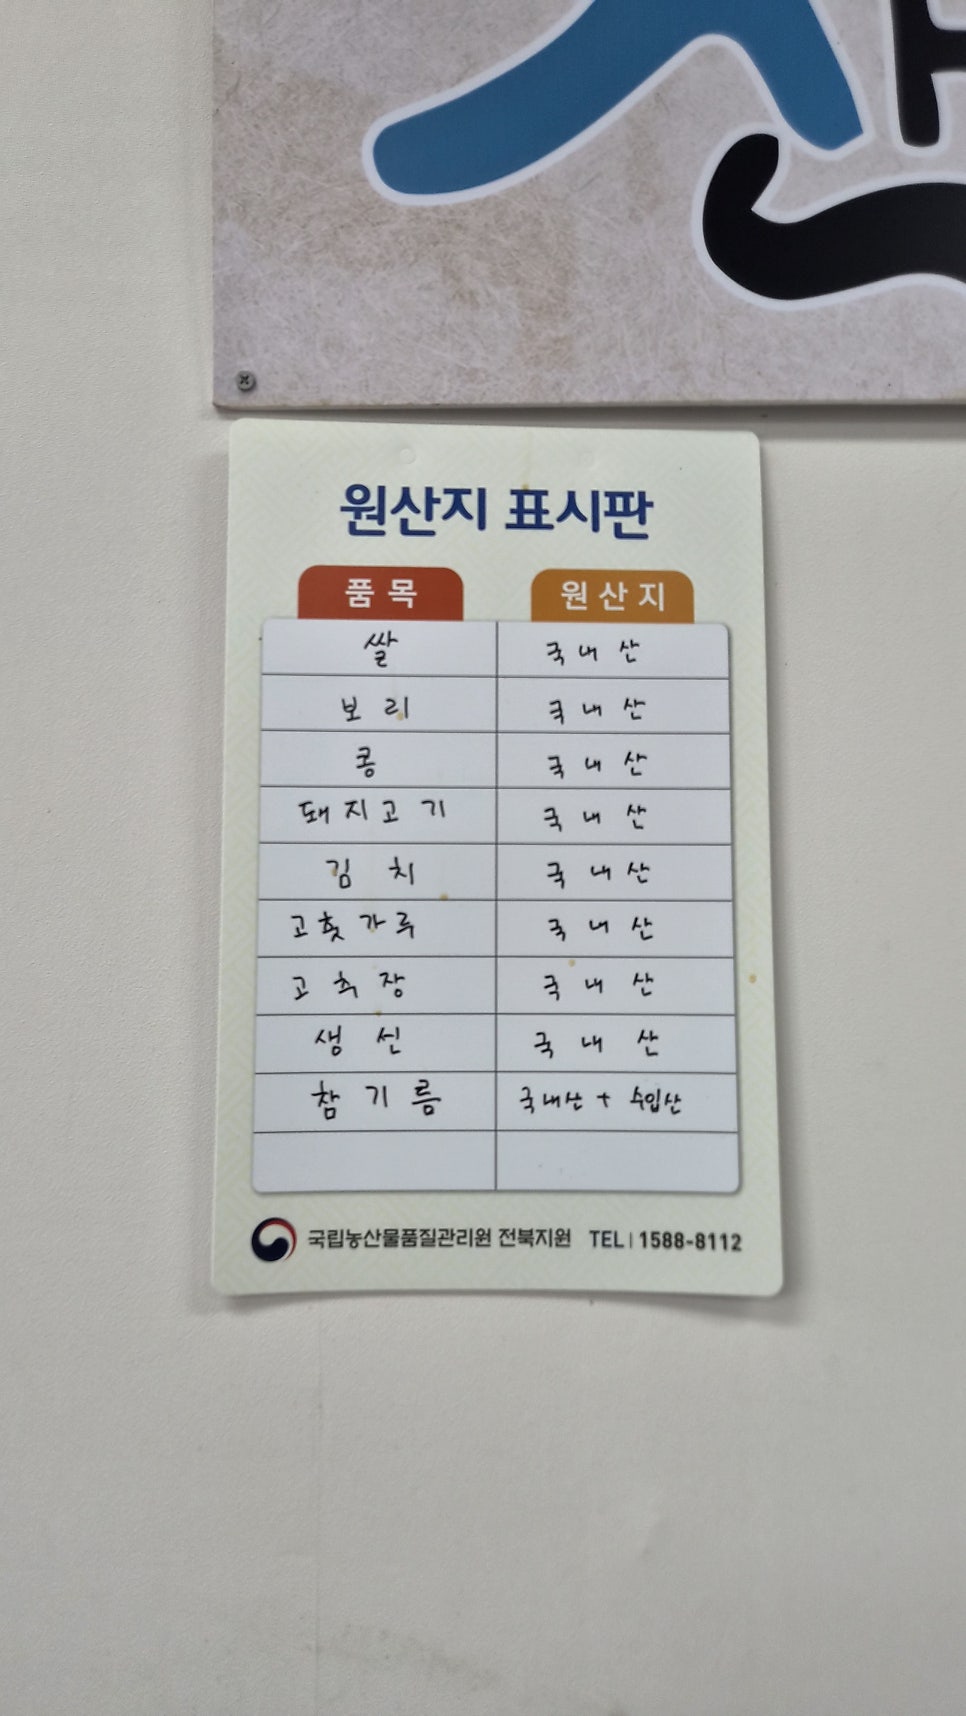 원산지 표시판
품목 원산지
쌀 국내산
보리 국내산
콩 국내산
돼지고기 국내산
김치 국내산
고춧가루 국내산
고추장 국내산
생선 국내산
참기름 국내산 + 수입산
국립농산물품질관리원 전북지원 TEL | 1588-8112